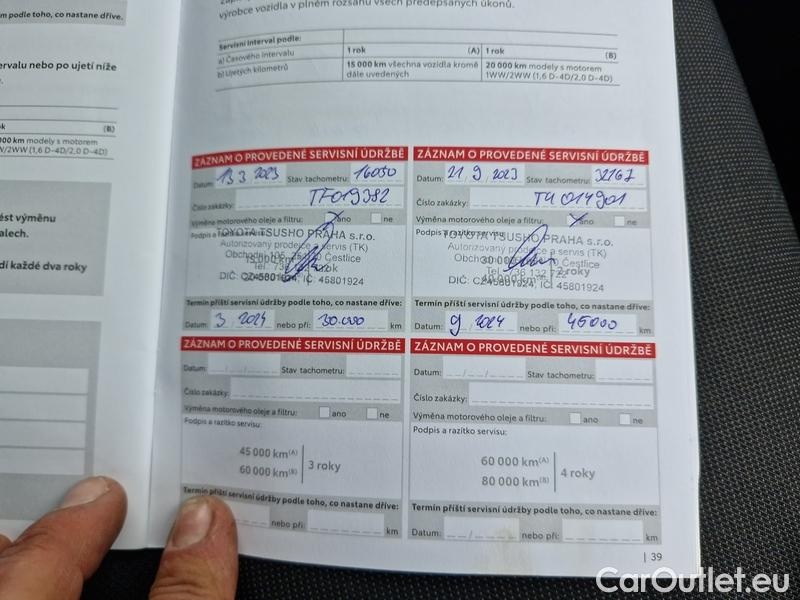 výrobce vozidla v plném rozsahu všech předepsaných úkonů.
m podle toho, co nastane dříve.
Servisní interval podle:
a) Časového intervalu
1 rok
(A)
1 rok
(B)
b) Ujetých kilometrů
15 000 km všechna vozidla kromě
dále uvedených
20 000 km modely s motorem
1WW/2WW (1,6 D-4D/2,0 D-4D)
ervalu nebo po ujetí níže
k
(B)
000 km modely s motorem
W/2WW (1,6 D-4D/2,0 D-4D)
ést výměnu
alech.
dí každé dva roky
ZÁZNAM O PROVEDENÉ SERVISNÍ ÚDRŽBĚ
Datum: 13 3 2023 Stav tachometru: 16050
Číslo zakázky: TF019382
Výměna motorového oleje a filtru: ano ne
Podpis a razítko servisu:
TOYOTA TSUSHO PRAHA s.r.o.
Autorizovaný prodejce a servis (TK)
Čestlice
15 000 km
DIČ: CZ45801924, IČ: 45801924
Termín příští servisní údržby podle toho, co nastane dříve:
Datum: 3 / 2024 nebo při: 30.000 km
ZÁZNAM O PROVEDENÉ SERVISNÍ ÚDRŽBĚ
Datum: 21 9 2023 Stav tachometru: 32167
Číslo zakázky: TH014901
Výměna motorového oleje a filtru: ano ne
Podpis a razítko servisu:
TOYOTA TSUSHO PRAHA s.r.o.
Autorizovaný prodejce a servis (TK)
Čestlice
30 000 km
2 roky
DIČ: CZ45801924, IČ: 45801924
Termín příští servisní údržby podle toho, co nastane dříve:
Datum: 9 / 2024 nebo při: 45000 km
ZÁZNAM O PROVEDENÉ SERVISNÍ ÚDRŽBĚ
Datum: Stav tachometru:
Číslo zakázky:
Výměna motorového oleje a filtru: ano ne
Podpis a razítko servisu:
45 000 km(A)
60 000 km(B)
3 roky
Termín příští servisní údržby podle toho, co nastane dříve:
nebo při: km
ZÁZNAM O PROVEDENÉ SERVISNÍ ÚDRŽBĚ
Datum: Stav tachometru:
Číslo zakázky:
Výměna motorového oleje a filtru: ano ne
Podpis a razítko servisu:
60 000 km(A)
80 000 km(B)
4 roky
Termín příští servisní údržby podle toho, co nastane dříve:
Datum: nebo při: km
| 39
CarOutlet.eu